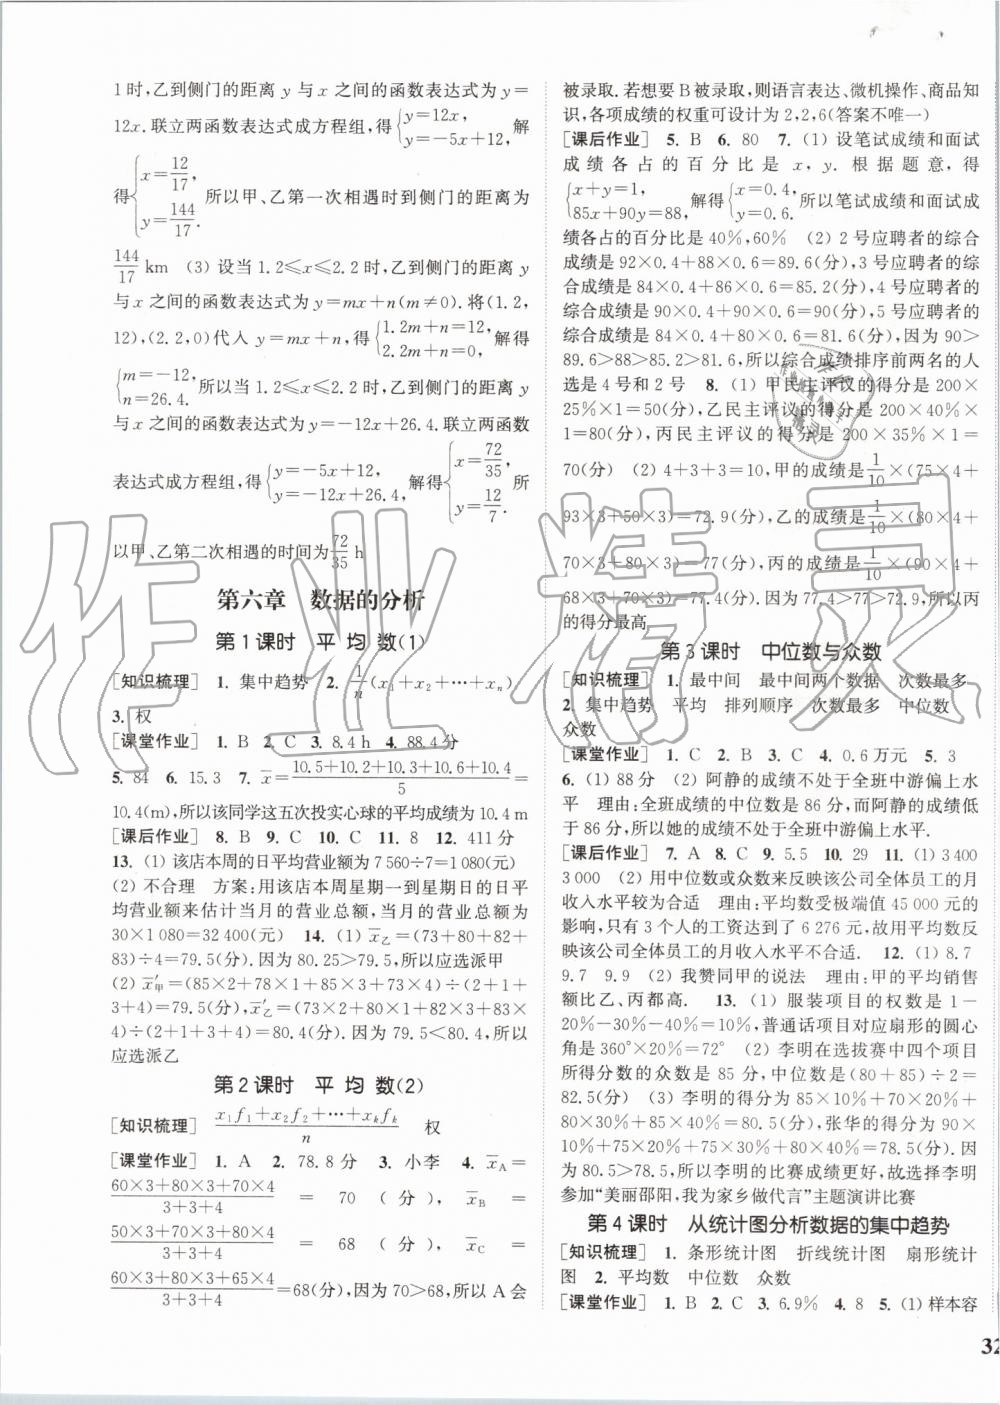 1时,乙到侧门的距离 y 与 x 之间的函数表达式为 y=
12x.联立两函数表达式成方程组,得{y=12x, y=-5x+12, 解
得{x=12/17, y=144/17. 所以甲、乙第一次相遇时到侧门的距离为
144/17 km (3) 设当 1.2≤x≤2.2 时,乙到侧门的距离 y
与 x 之间的函数表达式为 y=mx+n(m≠0).将(1.2,
12),(2.2,0)代入 y=mx+n,得{1.2m+n=12, 2.2m+n=0, 解得
{m=-12, n=26.4. 所以当 1.2≤x≤2.2 时,乙到侧门的距离 y
与 x 之间的函数表达式为 y=-12x+26.4.联立两函数
表达式成方程组,得{y=-5x+12, y=-12x+26.4, 解得{x=72/35, y=12/7. 所
以甲、乙第二次相遇的时间为 72/35 h
第六章 数据的分析
第1课时 平均数(1)
[知识梳理] 1. 集中趋势 2. 1/n(x₁+x₂+…+xₙ)
3. 权
[课堂作业] 1. B 2. C 3. 8.4 h 4. 88.4分
5. 84 6. 15.3 7. x̄=(10.5+10.2+10.3+10.6+10.4)/5=
10.4(m),所以该同学这五次投实心球的平均成绩为 10.4 m
[课后作业] 8. B 9. C 10. C 11. 8 12. 411分
13. (1) 该店本周的日平均营业额为 7 560÷7=1 080(元)
(2) 不合理 方案:用该店本周星期一到星期日的日平
均营业额来估计当月的营业总额,当月的营业总额为
30×1 080=32 400(元) 14. (1) x̄乙=(73+80+82+
83)÷4=79.5(分).因为 80.25>79.5,所以应选派甲
(2) x̄′甲=(85×2+78×1+85×3+73×4)÷(2+1+
3+4)=79.5(分),x̄′乙=(73×2+80×1+82×3+83×
4)÷(2+1+3+4)=80.4(分).因为 79.5<80.4,所以
应选派乙
第2课时 平均数(2)
[知识梳理] (x₁f₁+x₂f₂+…+xₖfₖ)/n 权
[课堂作业] 1. A 2. 78.8分 3. 小李 4. x̄A=
(60×3+80×3+70×4)/(3+3+4) = 70(分), x̄B =
(50×3+70×3+80×4)/(3+3+4) = 68(分), x̄C =
(60×3+80×3+65×4)/(3+3+4)=68(分).因为 70>68,所以 A 会
被录取.若想要 B 被录取,则语言表达、微机操作、商品知
识,各项成绩的权重可设计为 2,2,6(答案不唯一)
[课后作业] 5. B 6. 80 7. (1) 设笔试成绩和面试
成绩各占的百分比是 x, y. 根据题意,得
{x+y=1, 85x+90y=88, 解得{x=0.4, y=0.6. 所以笔试成绩和面试成
绩各占的百分比是 40%,60% (2) 2号应聘者的综合
成绩是 92×0.4+88×0.6=89.6(分),3号应聘者的综合
成绩是 84×0.4+86×0.6=85.2(分),4号应聘者的综合
成绩是 90×0.4+90×0.6=90(分),5号应聘者的综合
成绩是 84×0.4+80×0.6=81.6(分),因为 90>
89.6>88>85.2>81.6,所以综合成绩排序前两名的人
选是4号和2号 8. (1) 甲民主评议的得分是 200×
25%×1=50(分),乙民主评议的得分是 200×40%×
1=80(分),丙民主评议的得分是 200×35%×1=
70(分) (2) 4+3+3=10,甲的成绩是 1/10×(75×4+
93×3+50×3)=72.9(分),乙的成绩是 1/10×(80×4+
70×3+80×3)=77(分),丙的成绩是 1/10×(90×4+
68×3+70×3)=77.4(分).因为 77.4>77>72.9,所以丙
的得分最高
第3课时 中位数与众数
[知识梳理] 1. 最中间 最中间两个数据 次数最多
2. 集中趋势 平均 排列顺序 次数最多 中位数
众数
[课堂作业] 1. C 2. B 3. C 4. 0.6万元 5. 3
6. (1) 88分 (2) 阿静的成绩不处于全班中游偏上水
平 理由:全班成绩的中位数是 86 分,而阿静的成绩低
于 86 分,所以她的成绩不处于全班中游偏上水平.
[课后作业] 7. A 8. C 9. 5.5 10. 29 11. (1) 3 400
3 000 (2) 用中位数或众数来反映该公司全体员工的月
收入水平较为合适 理由:平均数受极端值 45 000 元的
影响,只有 3 个人的工资达到了 6 276 元,故用平均数反
映该公司全体员工的月收入水平不合适. 12. (1) 8.7
9.7 9.9 (2) 我赞同甲的说法 理由:甲的平均销售
额比乙、丙都高. 13. (1) 服装项目的权数是 1-
20%-30%-40%=10%,普通话项目对应扇形的圆心
角是 360°×20%=72° (2) 李明在选拔赛中四个项目
所得分数的众数是 85 分,中位数是(80+85)÷2=
82.5(分) (3) 李明的得分为 85×10%+70×20%+
80×30%+85×40%=80.5(分),张华的得分为 90×
10%+75×20%+75×30%+80×40%=78.5(分).因
为 80.5>78.5,所以李明的比赛成绩更好,故选择李明
参加“美丽邵阳,我为家乡做代言”主题演讲比赛
第4课时 从统计图分析数据的集中趋势
[知识梳理] 1. 条形统计图 折线统计图 扇形统计
图 2. 平均数 中位数 众数
[课堂作业] 1. B 2. C 3. 6.9% 4. 8 5. (1) 样本容
32
作业精灵